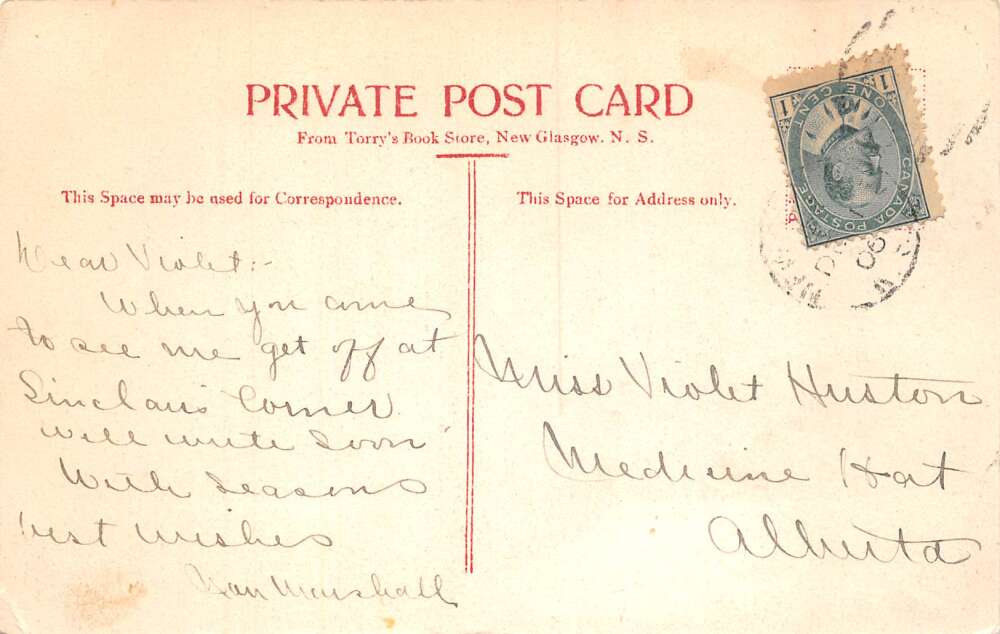 PRIVATE POST CARD
From Torry's Book Store, New Glasgow. N. S.
This Space may be used for Correspondence.
Dear Violet:-
When you come
to see me get off at
Sinclairs Corner
will write soon
With seasons
best wishes
Marshall
This Space for Address only.
1 ONE CENT 1
CANADA POSTAGE
DE
06
Miss Violet Huston
Medicine Hat
Alberta